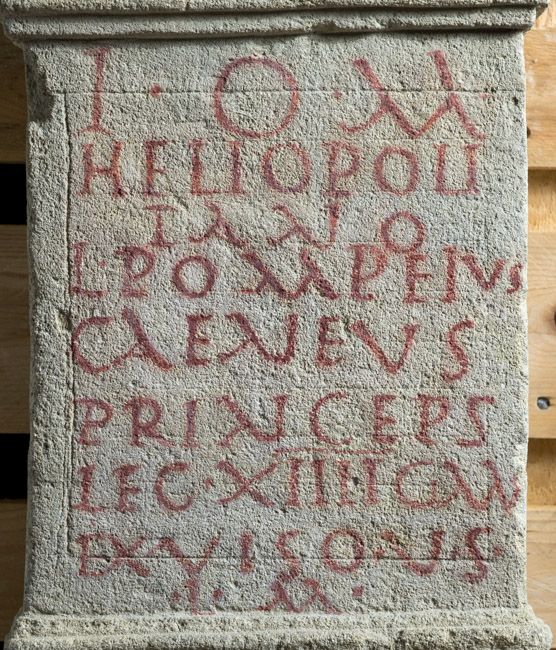 I · O · M
HELIOPOLI
TANO
L · POMPEIVS
CAENEVS
PRINCEPS
LEG · XIIII GM
EX VISO V · S ·
· L · M ·